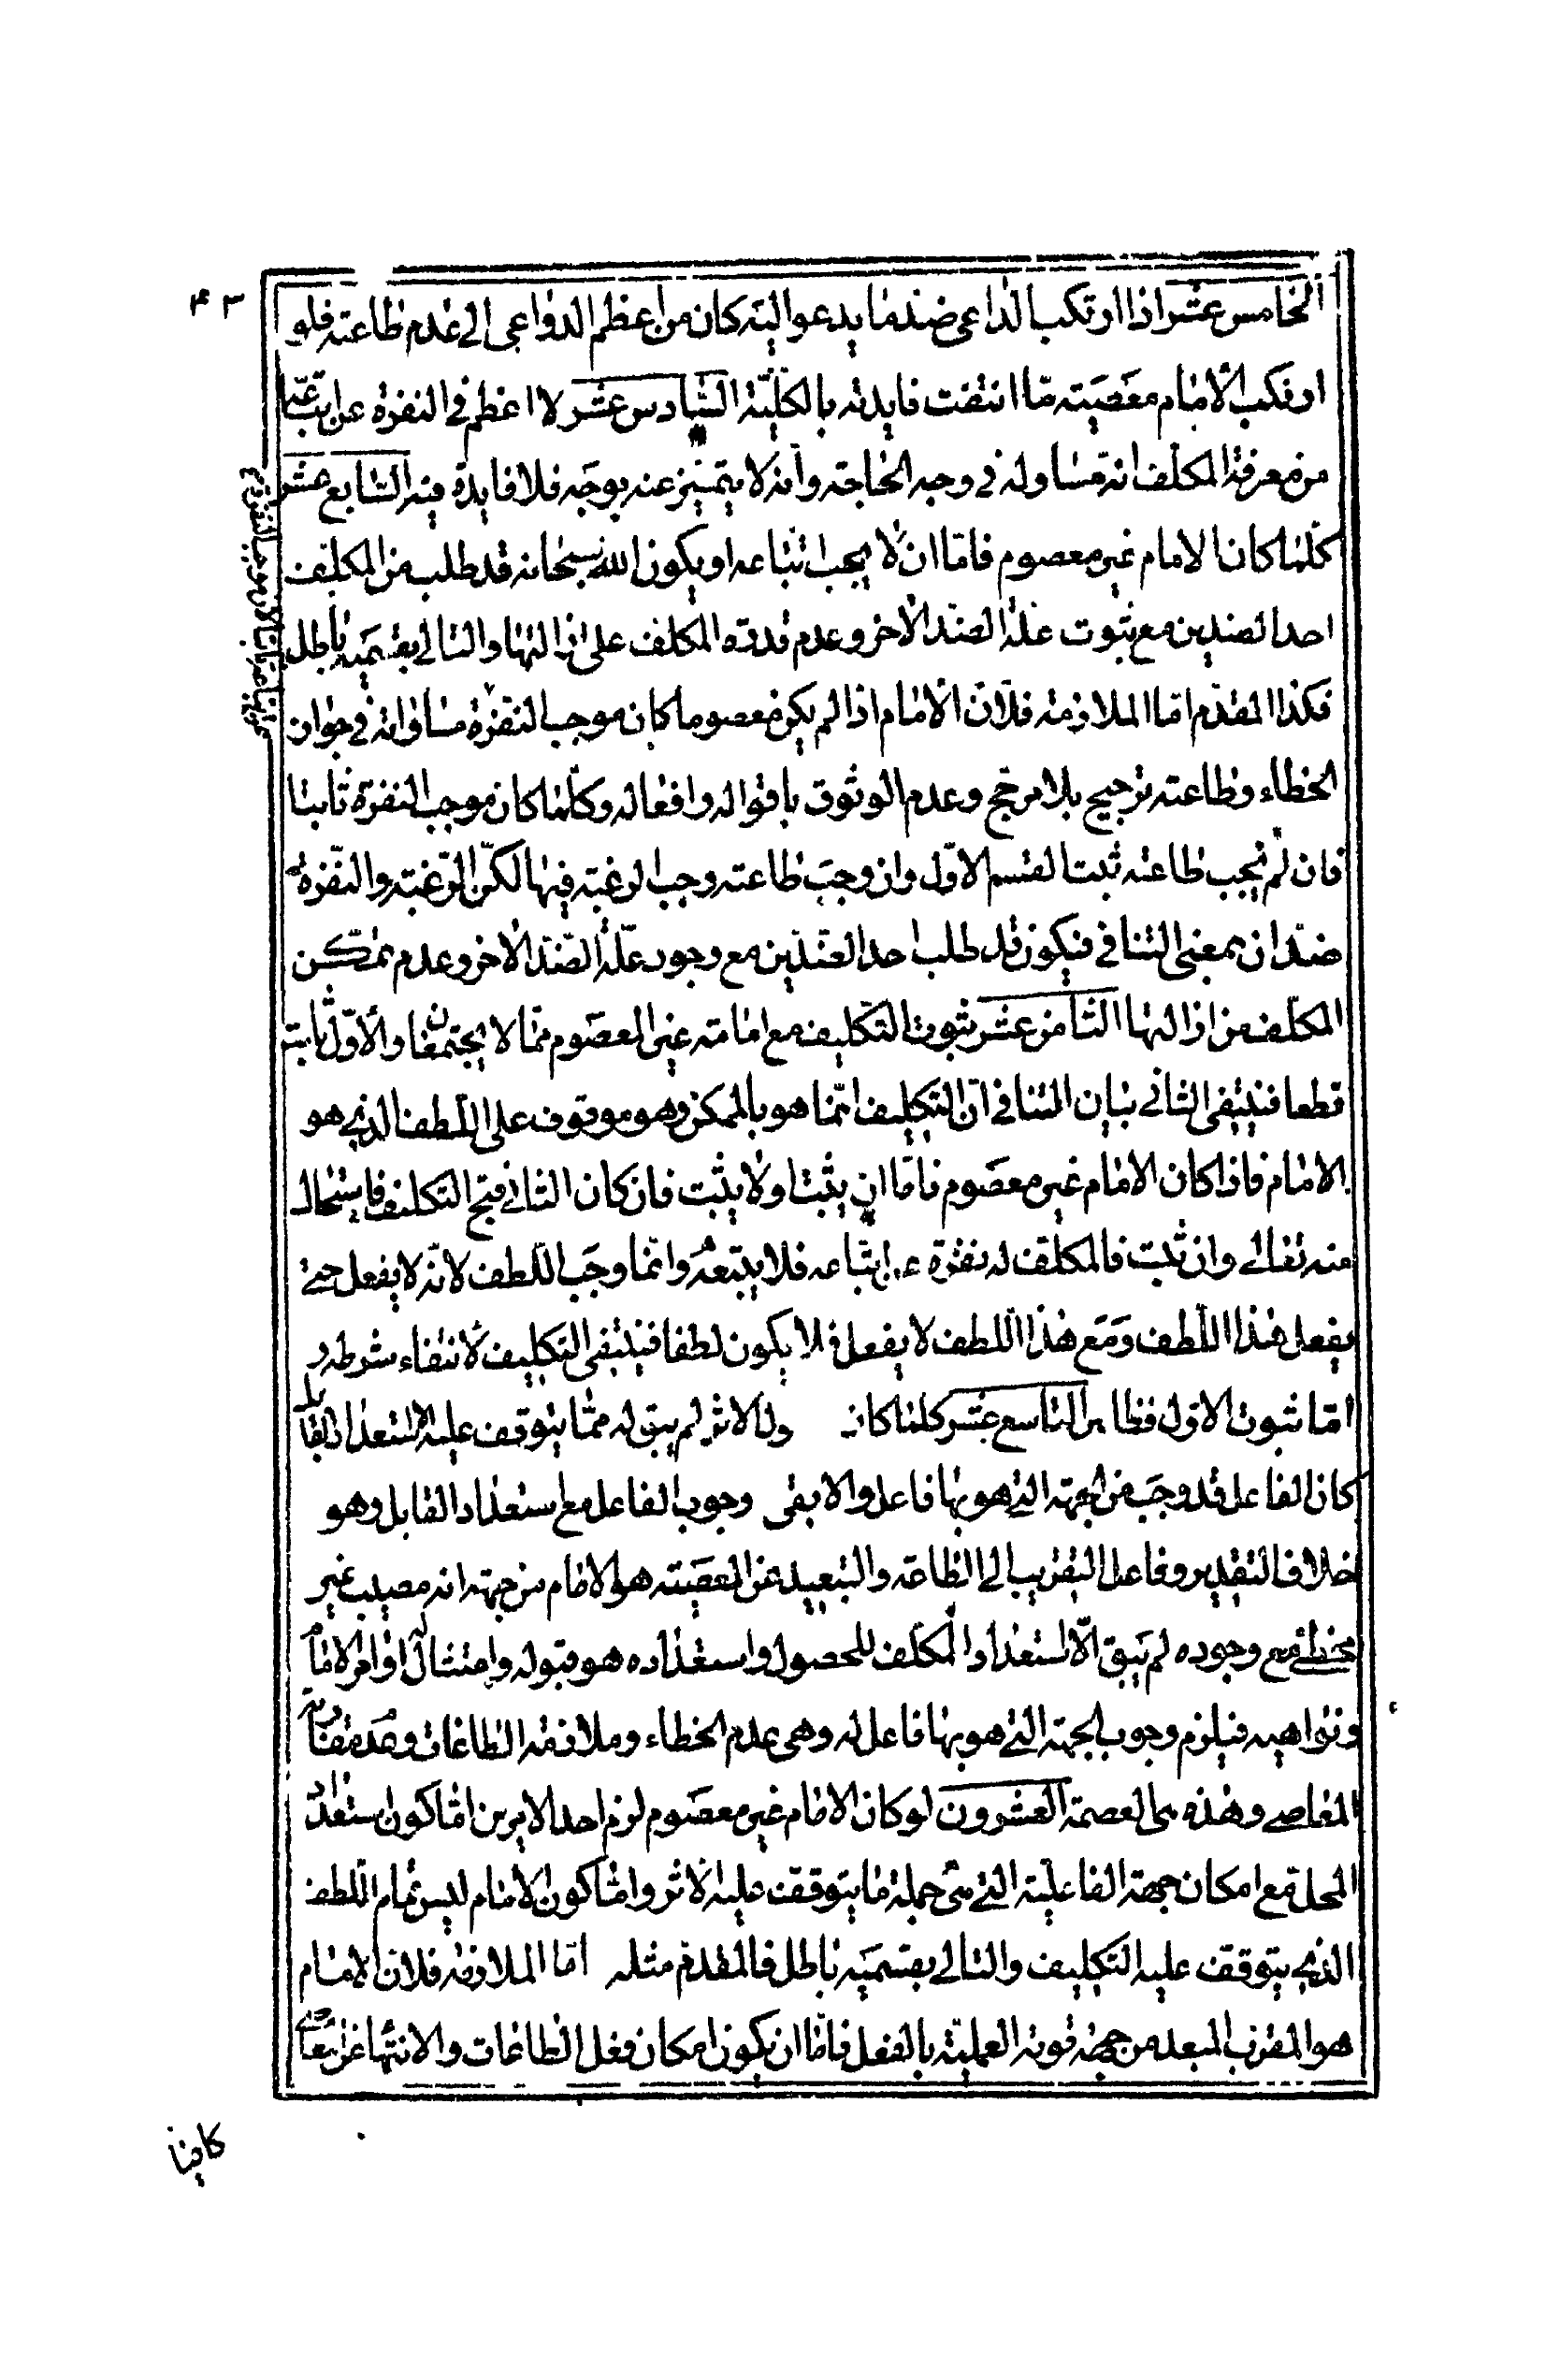 ۴۳
الخامس عشر اذا ارتكب الداعى ضد ما يدعو اليه كان من اعظم الدواعى الى عدم طاعته فلو
ارتكب الامام معصية ما انتفت فايدته بالكلية السادس عشر لا اعظم فى النفرة عن اتباع
من معرفة المكلف انه مساو له فى وجه الحاجة وانه لا يتميز عنه بوجه فلا فايدة فيه السابع عشر
كلما كان الامام غير معصوم فاما ان لا يجب اتباعه او يكون الله سبحانه قد طلب من المكلف
احد الضدين مع ثبوت علة الضد الاخر وعدم قدرة المكلف على ازالتها والتالى بقسميه باطل
فكذا المقدم اما الملازمة فلان الامام اذا لم يكن معصوما كان موجب النفرة مساواته فى جواز
الخطاء وطاعته ترجيح بلا مرجح وعدم الوثوق باقواله وافعاله وكلما كان موجب النفرة ثابتا
فان لم يجب طاعته ثبت القسم الاول وان وجب طاعته وجب الرغبة فيها لكن الرغبة والنفرة
ضدان بمعنى التنافى فيكون قد طلب احد الضدين مع وجود علة الضد الاخر وعدم تمكن
المكلف من ازالتها الثامن عشر ثبوت التكليف مع امامة غير المعصوم مما لا يجتمعان والاول ثابت
قطعا فينتفى الثانى بيان التنافى ان التكليف انما هو بالممكن وهو موقوف على اللطف الذى هو
الامام فاذا كان الامام غير معصوم فاما ان يثبت او لا يثبت فان كان الثانى قبح التكليف فاستحال
منه تعالى وان ثبت فالمكلف له نفرة عن اتباعه فلا يتبعه وانما وجب اللطف لانه لا يفعل حتى
يفعل هذا اللطف ومع هذا اللطف لا يفعل فلا يكون لطفا فينتفى التكليف لانتفاء شرطه و
اما ثبوت الاول فظاهر التاسع عشر كلما كان ولا لاثر لم يبق له مما يتوقف عليه الا استعداد القابل
كان الفاعل قد وجب من الجهة التى هو بها فاعل والا بقى وجوب الفاعل مع استعداد القابل وهو
خلاف التقدير وفاعل التقريب الى الطاعة والتبعيد عن المعصية هو الامام من جهة انه مصيب غير
مخطئ فمع وجوده لم يبق الا استعداد المكلف للحصول واستعداده هو قبوله وامتثال اوامر الامام
ونواهيه فيلزم وجوب الجهة التى هو بها فاعل له وهى عدم الخطاء وملازمة الطاعات وعدم مقارنة
المعاصى وهذه هى العصمة العشرون لو كان الامام غير معصوم لزم احد الامرين اما كون استعداد
المحل مع امكان جهة الفاعلية التى هى جملة ما يتوقف عليه الاثر واما كون الامام ليس تمام اللطف
الذى يتوقف عليه التكليف والتالى بقسميه باطل فالمقدم مثله اما الملازمة فلان الامام
هو المقرب المبعد من جهة قوته العملية بالفعل فاما ان يكون امكان فعل الطاعات والانتهاء عن المعاصى
كافيا